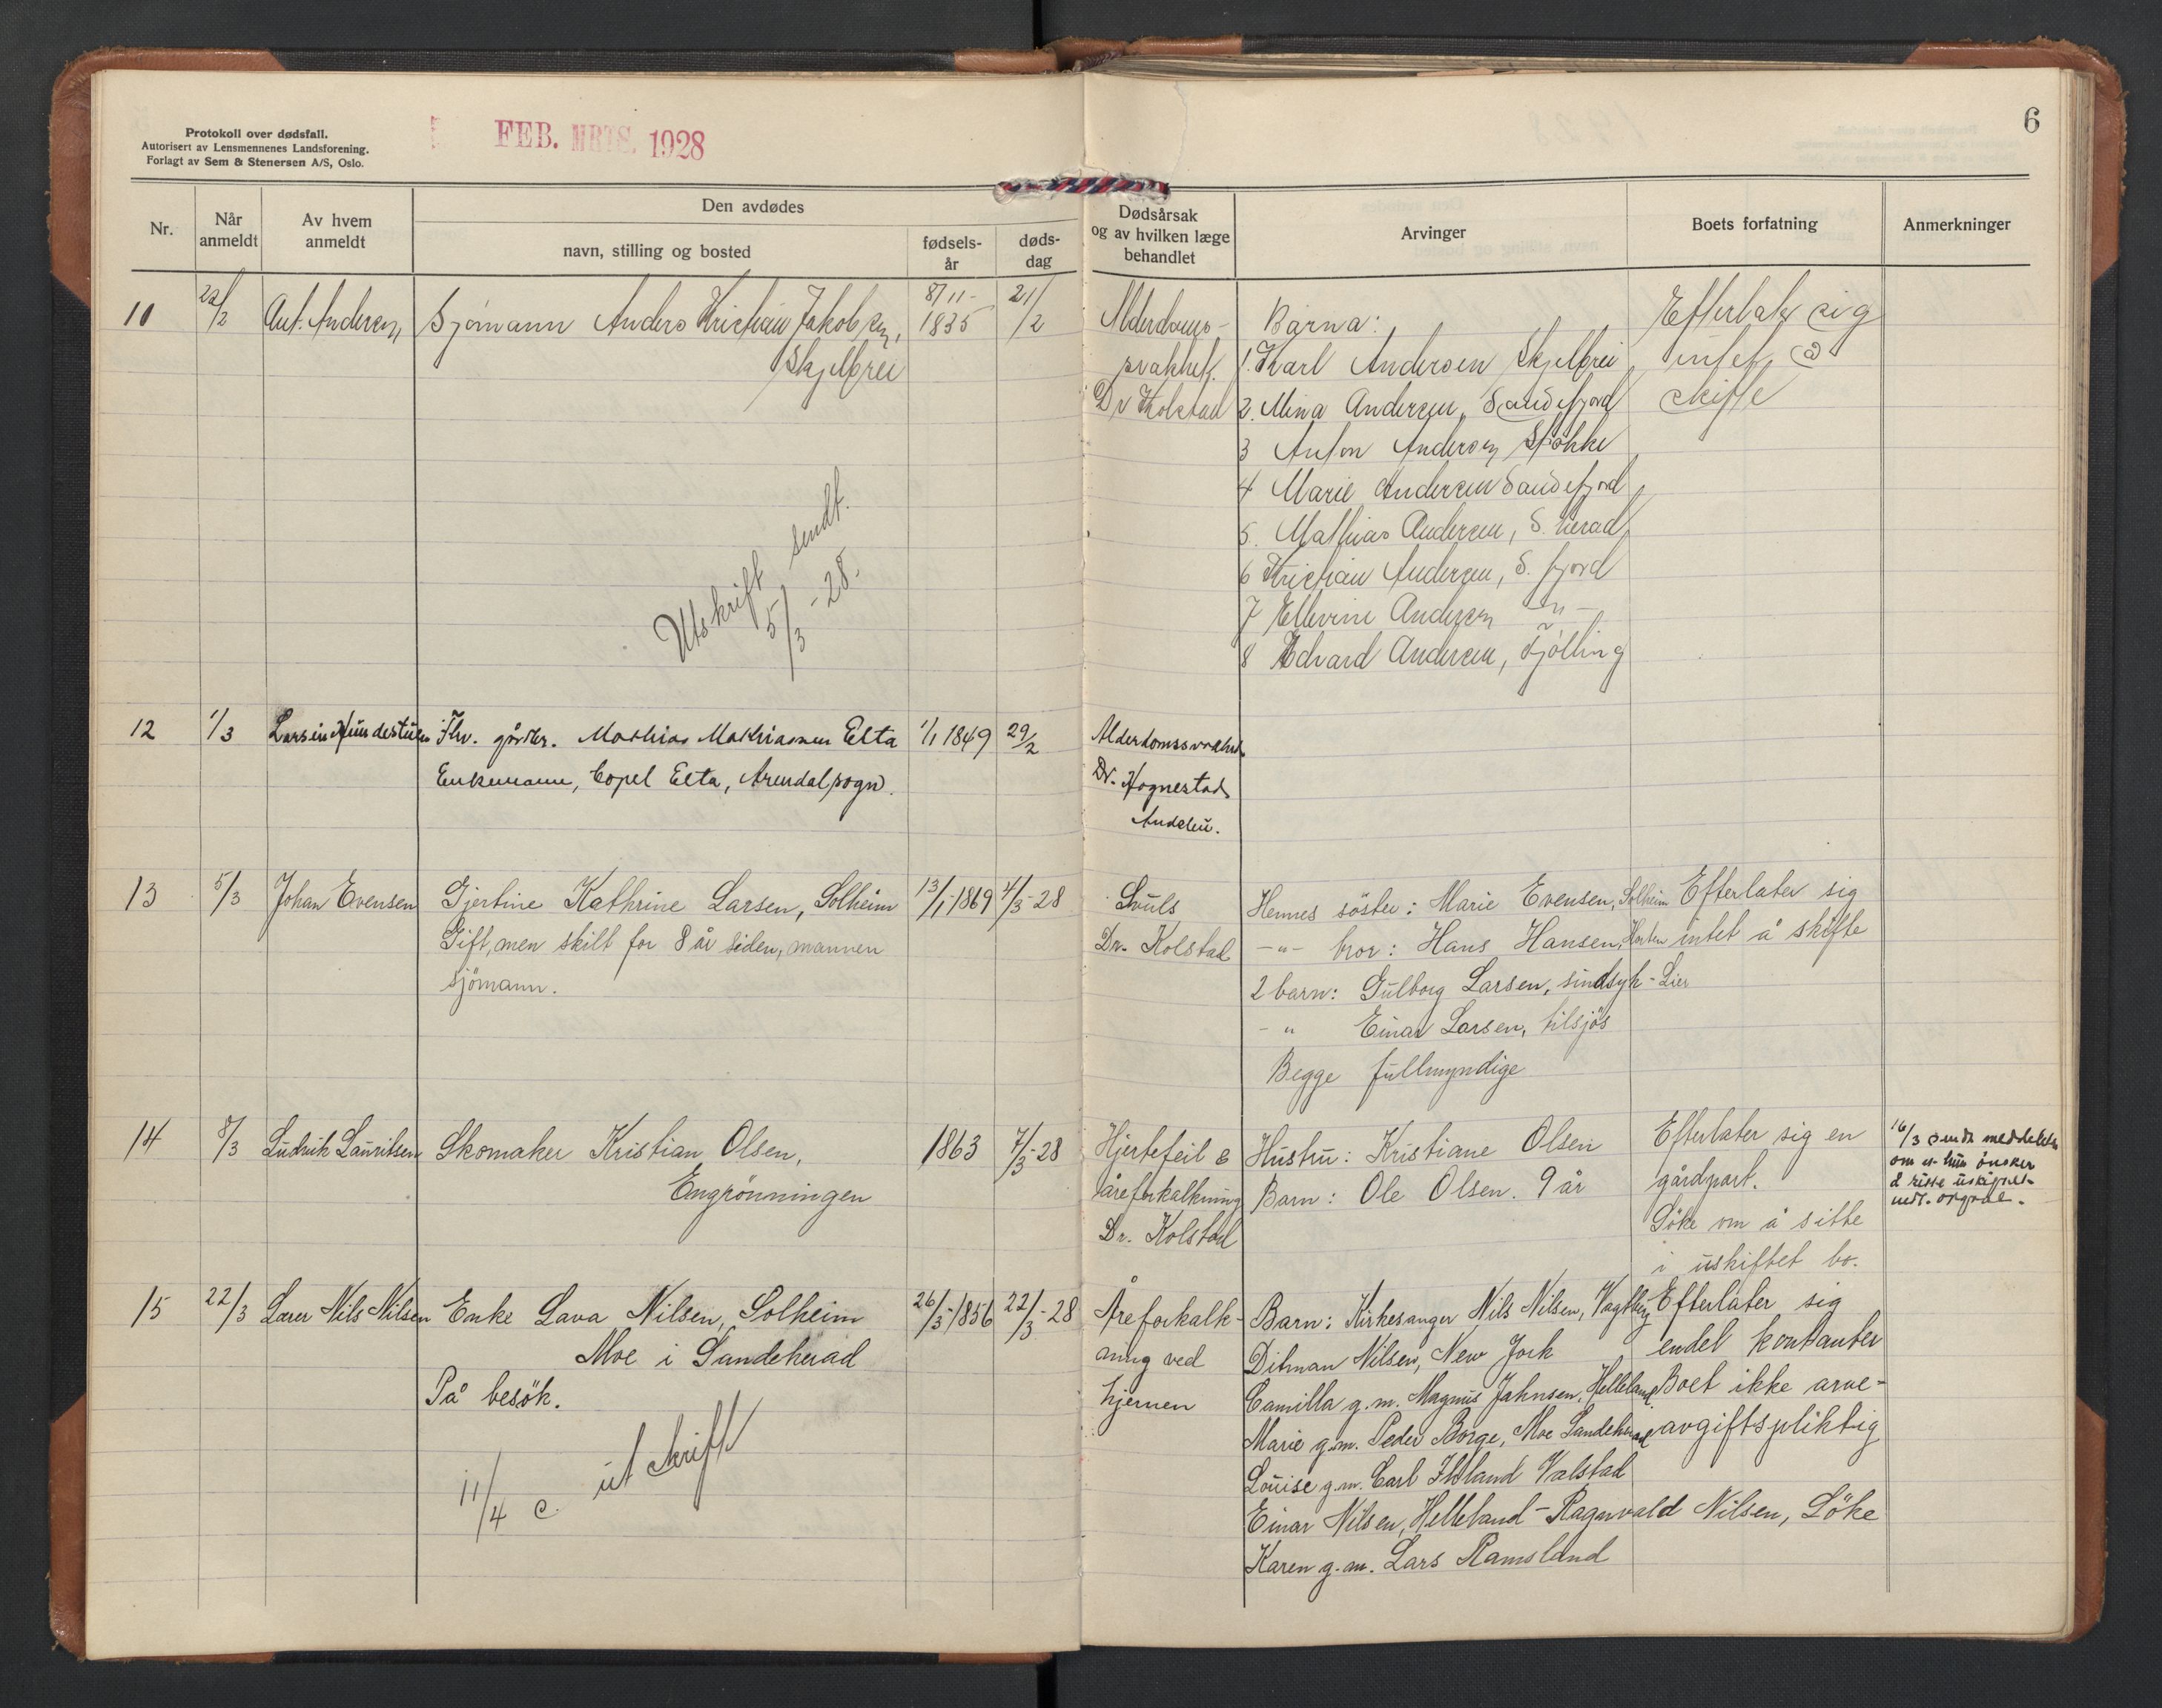 Protokoll over dødsfall.
Autorisert av Lensmennenes Landsforening.
Forlagt av Sem & Stenersen A/S, Oslo.
FEB. MRTS. 1928
6
Nr.
Når anmeldt
Av hvem anmeldt
Den avdødes
navn, stilling og bosted
fødsels-år
døds-dag
Dødsårsak og av hvilken læge behandlet
Arvinger
Boets forfatning
Anmerkninger
11
22/2
Ant. Andersen,
Sjömann Anders Kristian Jakobsen,
Skjelbrei
8/11-
1835
21/2
Alderdoms-
svakhet.
Dr Kolstad
Barna:
1. Karl Andersen Skjelbrei
2. Mina Andersen, Sandefjord
3 Anton Andersen Stokke
4 Marie Andersen Sandefjord
5. Mathias Andersen, S. herad
6 Kristian Andersen, S. fjord
7 Ellevine Andersen -"-
8 Edvard Andersen, Tjölling
Efterlater sig
intet å
skifte
Utskrift sendt.
5/3 - 28.
12
1/3
Fhv. gårdbr. Mathias Mathiasen Elta
Enkemann, Elta, Arendal sogn.
1/1 1849
29/2
Alderdomssvakhet
Dr. Hognestad
13
5/3
Johan Evensen
Gjertine Kathrine Larsen, Solheim
Gift, men skilt for 8 år siden, mannen
sjömann.
13/1 1869
4/3-28
Svuls
Dr. Kolstad
Hennes söster: Marie Evensen, Solheim
-"- bror: Hans Hansen, Horten
2 barn: Gulborg Larsen, sindsyk - Lier
-" Einar Larsen, tilsjös
Begge fullmyndige
Efterlater sig
intet å skifte
14
8/3
Ludvik Lauritsen
Skomaker Kristian Olsen,
Engrönningen
1863
7/3-28
Hjertefeil &
åreforkalkning
Dr. Kolstad
Hustru: Kristiane Olsen
Barn: Ole Olsen. 9 år
Efterlater sig en
gårdpart.
Söke om å sitte
i uskiftet bo.
16/3 sendt meddelelse
om at hun ønsker
15
22/3
Lærer Nils Nilsen
Enke Lava Nilsen, Solheim
Moe i Sandeherad
På besök.
26/3-1856
22/3-28
Åreforkalk-
ning ved
hjernen
Barn: Kirkesanger Nils Nilsen,
Ditman Nilsen, New Jork
Camilla g.m. Magnus Jahnsen, Helleland
Marie g.m. Peder Borge, Moe Sandeherad
Louise g.m. Carl Valstad
Einar Nilsen, Helleland - Ragnvald Nilsen, Söke
Karen g.m. Lars Ramsland
Efterlater sig
endel kontanter
Boet ikke arve-
avgiftspliktig
11/4 c. utskrift